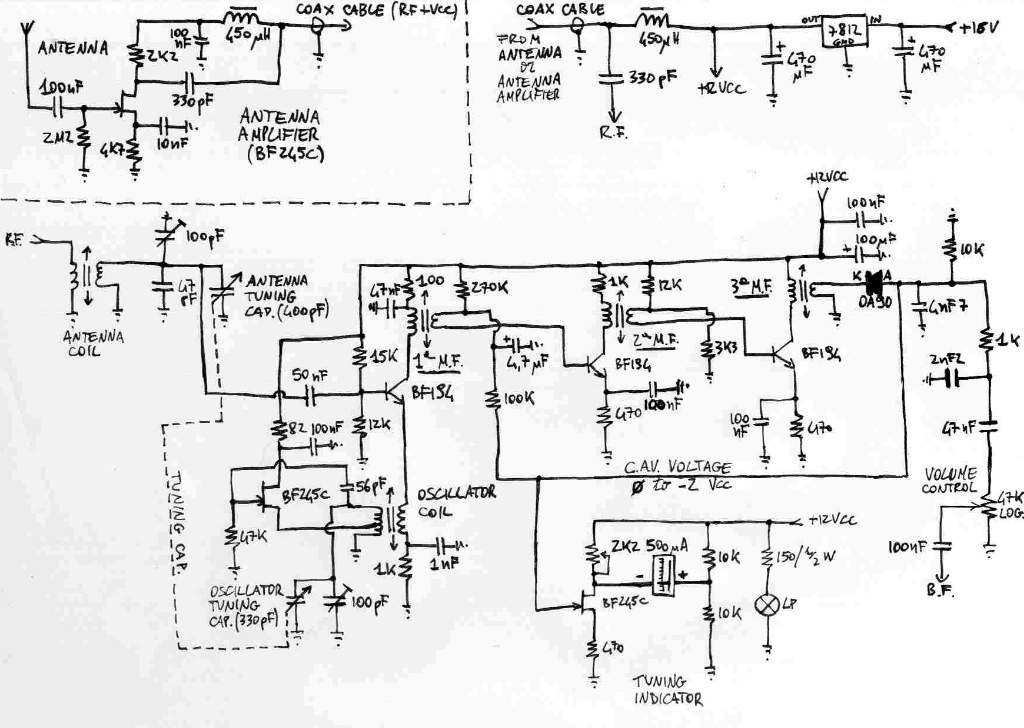 COAX CABLE (RF+VCC)
ANTENNA
100 nF
450 µH
2K2
100nF
330pF
2M2
4K7
10nF
ANTENNA
AMPLIFIER
(BF245C)
COAX CABLE
FROM
ANTENNA
or
ANTENNA
AMPLIFIER
450µH
330 pF
R.F.
+12VCC
OUT
7812
IN
GND
470
µF
470
µF
+15V
R.F.
100pF
47
pF
ANTENNA
COIL
ANTENNA
TUNING
CAP. (400pF)
47nF
100
270K
1ª M.F.
15K
50nF
BF194
4,7 µF
100K
82
100nF
12K
BF245C
56pF
OSCILLATOR
COIL
47K
1K
1nF
OSCILLATOR
TUNING
CAP. (330pF)
100pF
TUNING CAP.
1K
12K
2ª M.F.
BF194
3K3
100nF
470
+12VCC
100nF
+
100µF
3ª M.F.
K A
OA90
BF194
100
nF
470
10K
4nF7
1K
2nF2
47nF
VOLUME
CONTROL
47K
LOG.
100nF
B.F.
C.A.V. VOLTAGE
Ø to -2 VCC
+12VCC
2K2
500µA
-
+
10K
150/½W
BF245C
10K
LP
470
TUNING
INDICATOR